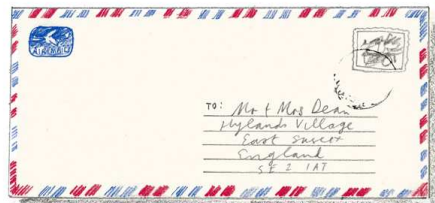 TO: Mr + Mrs Dean
Hylands Village
East Sussex
England
SE2 1AT